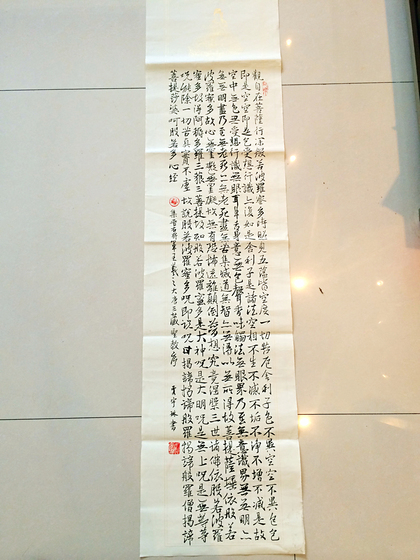 觀自在菩薩行深般若波羅蜜多時照見五蘊皆空度一切苦厄舍利子色不異空空不異色色
即是空空即是色受想行識亦復如是舍利子是諸法空相不生不滅不垢不淨不增不減是故
空中無色無受想行識無眼耳鼻舌身意無色聲香味觸法無眼界乃至無意識界無無明亦
無無明盡乃至無老死亦無老死盡無苦集滅道無智亦無得以無所得故菩提薩埵依般若
波羅蜜多故心無罣礙無罣礙故無有恐怖遠離顛倒夢想究竟涅槃三世諸佛依般若波羅
蜜多故得阿耨多羅三藐三菩提故知般若波羅蜜多是大神咒是大明咒是無上咒是無等等
咒能除一切苦真實不虛故說般若波羅蜜多咒即說咒曰揭諦揭諦般羅揭諦般羅僧揭諦
菩提莎婆呵般若多心經
集晉右將軍王羲之大唐三藏聖教序
書